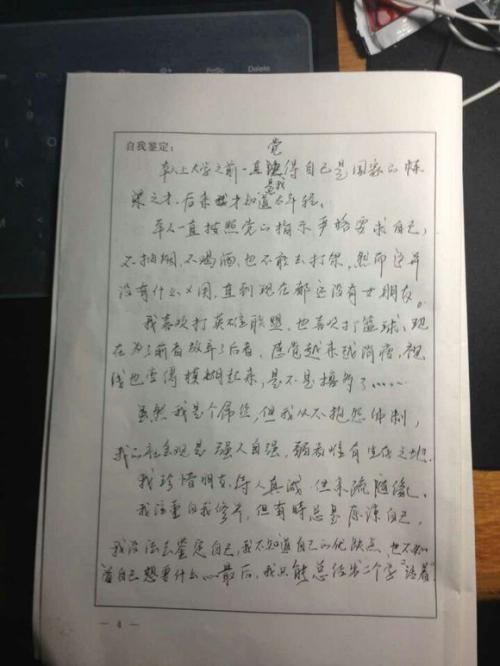 PrtSc
Delete
自我鉴定：
觉
本人上大学之前一直得自己是国家的栋
是我
梁之才，后来才知道太年轻。
本人一直按照党的指示严格要求自己，
不抽烟，不喝酒，也不敢去打架，然而这并
没有什么用，直到现在都还没有女朋友。
我喜欢打英雄联盟，也喜欢打篮球，现
在为了前者放弃了后者，感觉越来越消瘦，视
线也变得模糊起来，是不是撸多了……
虽然我是个屌丝，但我从不抱怨体制，
我的社会观是强人自强，弱者惟有生存之地。
我珍惜朋友，待人真诚，但来疏随缘。
我注重自我修养，但有时总是原谅自己，
我没法去鉴定自己，我不知道自己的优缺点，也不知
道自己想要什么……最后，我只能总结出二个字“活着”
— 4 —